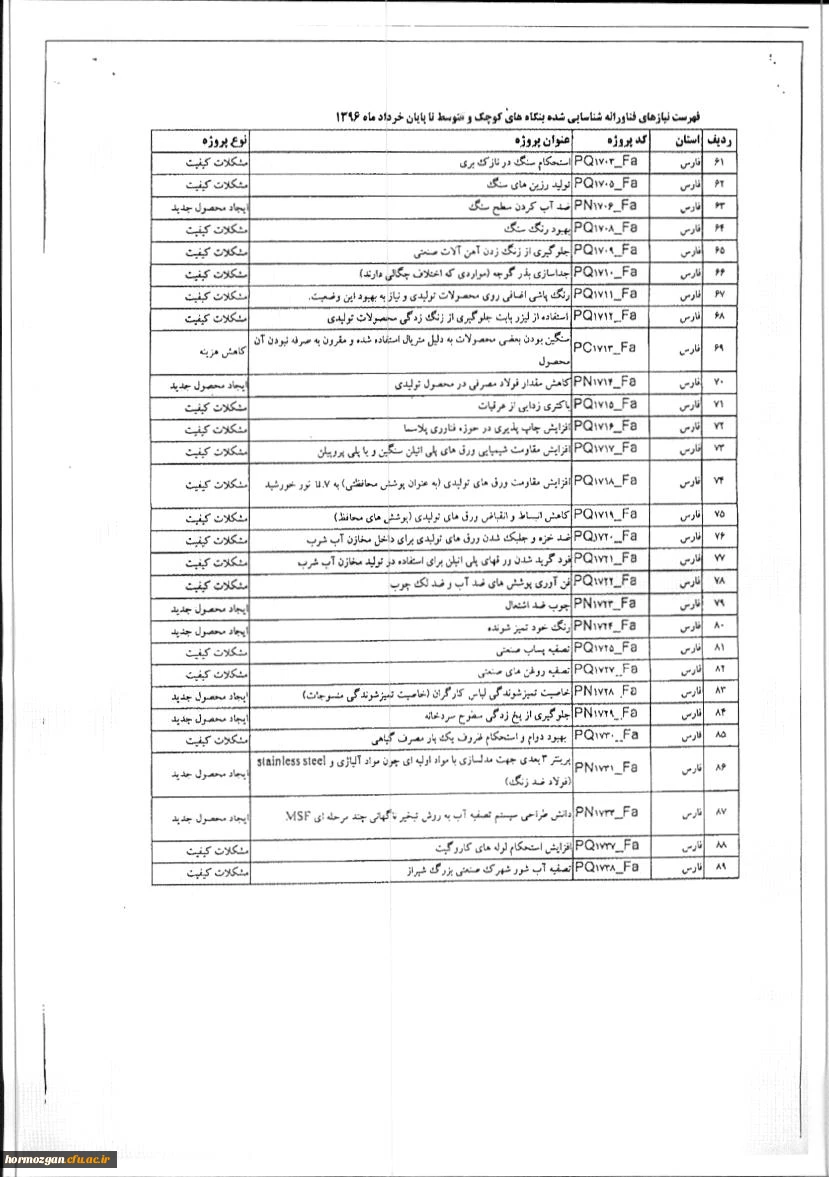 فهرست نیازهای فناورانه شناسایی شده بنگاه های کوچک و متوسط تا پایان خرداد ماه ۱۳۹۶
ردیف استان کد پروژه عنوان پروژه نوع پروژه
۶۱ فارس PQ۱۷۰۳_Fa استحکام سنگ در نازک بری مشکلات کیفیت
۶۲ فارس PQ۱۷۰۵_Fa تولید رزین های سنگ مشکلات کیفیت
۶۳ فارس PN۱۷۰۶_Fa ضد آب کردن سطح سنگ ایجاد محصول جدید
۶۴ فارس PQ۱۷۰۸_Fa بهبود رنگ سنگ مشکلات کیفیت
۶۵ فارس PQ۱۷۰۹_Fa جلوگیری از زنگ زدن آهن آلات صنعتی مشکلات کیفیت
۶۶ فارس PQ۱۷۱۰_Fa جداسازی بذر گوجه (مواردی که اختلاف چگالی دارند) مشکلات کیفیت
۶۷ فارس PQ۱۷۱۱_Fa رنگ پاشی اضافی روی محصولات تولیدی و نیاز به بهبود این وضعیت. مشکلات کیفیت
۶۸ فارس PQ۱۷۱۲_Fa استفاده از لیزر بابت جلوگیری از زنگ زدگی محصولات تولیدی مشکلات کیفیت
۶۹ فارس PC۱۷۱۳_Fa سنگین بودن بعضی محصولات به دلیل متریال استفاده شده و مقرون به صرفه نبودن آن کاهش هزینه
محصول
۷۰ فارس PN۱۷۱۴_Fa کاهش مقدار فولاد مصرفی در محصول تولیدی ایجاد محصول جدید
۷۱ فارس PQ۱۷۱۵_Fa باکتری زدایی از عرقیات مشکلات کیفیت
۷۲ فارس PQ۱۷۱۶_Fa افزایش چاپ پذیری در حوزه فناوری پلاسما مشکلات کیفیت
۷۳ فارس PQ۱۷۱۷_Fa افزایش مقاومت شیمیایی ورق های پلی اتیلن سنگین و یا پلی پروپیلن مشکلات کیفیت
۷۴ فارس PQ۱۷۱۸_Fa افزایش مقاومت ورق های تولیدی (به عنوان پوشش محافظتی) به u.v نور خورشید مشکلات کیفیت
۷۵ فارس PQ۱۷۱۹_Fa کاهش انبساط و انقباض ورق های تولیدی (پوشش های محافظ) مشکلات کیفیت
۷۶ فارس PQ۱۷۲۰_Fa ضد خزه و جلبک شدن ورق های تولیدی برای داخل مخازن آب شرب مشکلات کیفیت
۷۷ فارس PQ۱۷۲۱_Fa فود گرید شدن ورقهای پلی اتیلن برای استفاده در تولید مخازن آب شرب مشکلات کیفیت
۷۸ فارس PQ۱۷۲۲_Fa فن آوری پوشش های ضد آب و ضد لک چوب مشکلات کیفیت
۷۹ فارس PN۱۷۲۳_Fa چوب ضد اشتعال ایجاد محصول جدید
۸۰ فارس PN۱۷۲۴_Fa رنگ خود تمیز شونده ایجاد محصول جدید
۸۱ فارس PQ۱۷۲۵_Fa تصفیه پساب صنعتی مشکلات کیفیت
۸۲ فارس PQ۱۷۲۷_Fa تصفیه روغن های صنعتی مشکلات کیفیت
۸۳ فارس PN۱۷۲۸_Fa خاصیت تمیزشوندگی لباس کارگران (خاصیت تمیزشوندگی منسوجات) ایجاد محصول جدید
۸۴ فارس PN۱۷۲۹_Fa جلوگیری از یخ زدگی سطوح سردخانه ایجاد محصول جدید
۸۵ فارس PQ۱۷۳۰_Fa بهبود دوام و استحکام ظروف یک بار مصرف گیاهی مشکلات کیفیت
۸۶ فارس PN۱۷۳۱_Fa پرینتر ۳ بعدی جهت مدلسازی با مواد اولیه ای چون مواد آلیاژی و stainless steel ایجاد محصول جدید
(فولاد ضد زنگ)
۸۷ فارس PN۱۷۳۳_Fa دانش طراحی سیستم تصفیه آب به روش تبخیر ناگهانی چند مرحله ای MSF ایجاد محصول جدید
۸۸ فارس PQ۱۷۳۷_Fa افزایش استحکام لوله های کاروگیت مشکلات کیفیت
۸۹ فارس PQ۱۷۳۸_Fa تصفیه آب شور شهرک صنعتی بزرگ شیراز مشکلات کیفیت
hormozgan.cfu.ac.ir